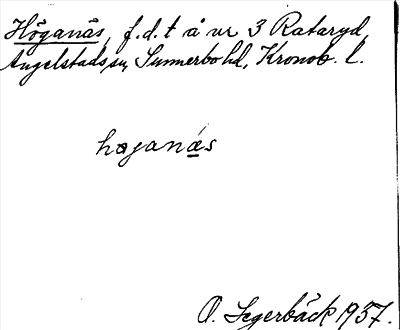 Höganäs, f.d.t å nr 3 Rataryd,
Angelstads sn, Sunnerbo hd, Kronob. l.
høganæ̲s
O. Segerbäck 1937.